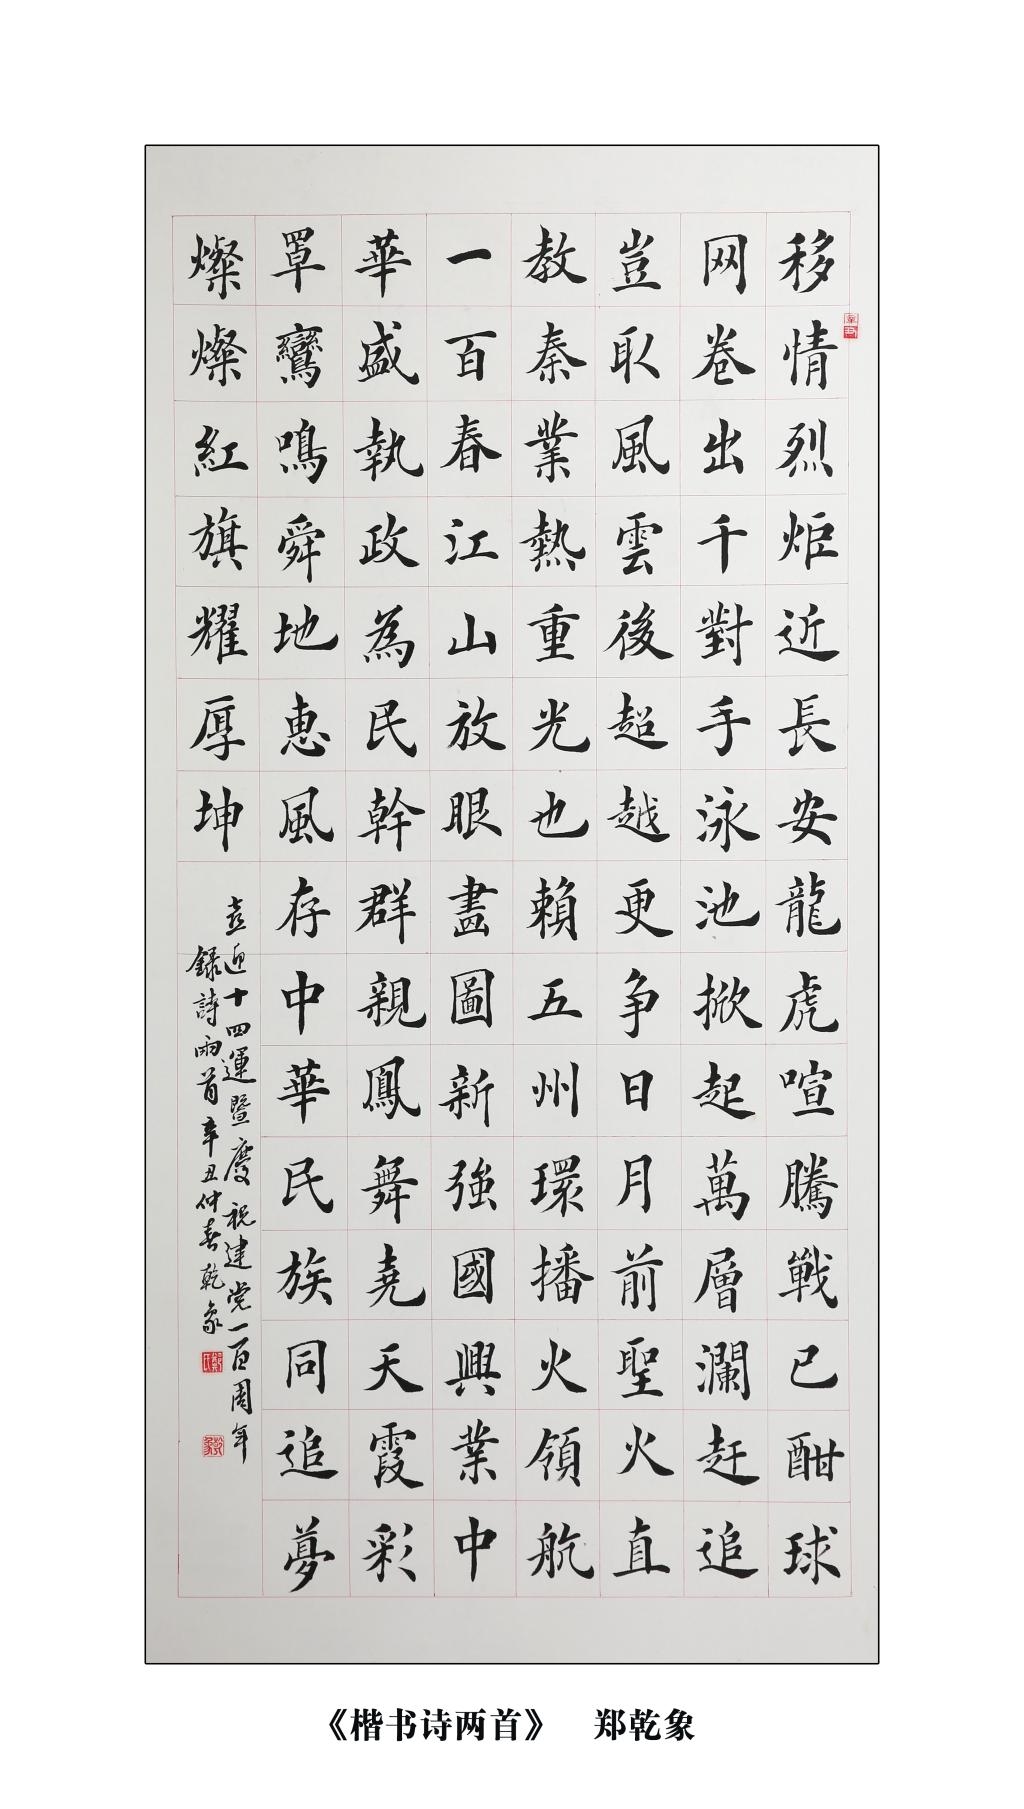 移情烈炬近長安龍虎喧騰戰已酣球
网卷出千對手泳池掀起萬層瀾赶追
豈取風雲後超越更争日月前聖火直
教秦業熱重光也賴五州環播火領航
一百春江山放眼畫圖新強國興業中
華盛執政為民幹群親鳳舞堯天霞彩
罩鸞鳴舜地惠風存中華民族同追夢
燦燦紅旗耀厚坤
喜迎十四運暨慶祝建党一百周年
錄詩兩首辛丑仲春乾象
《楷书诗两首》 郑乾象